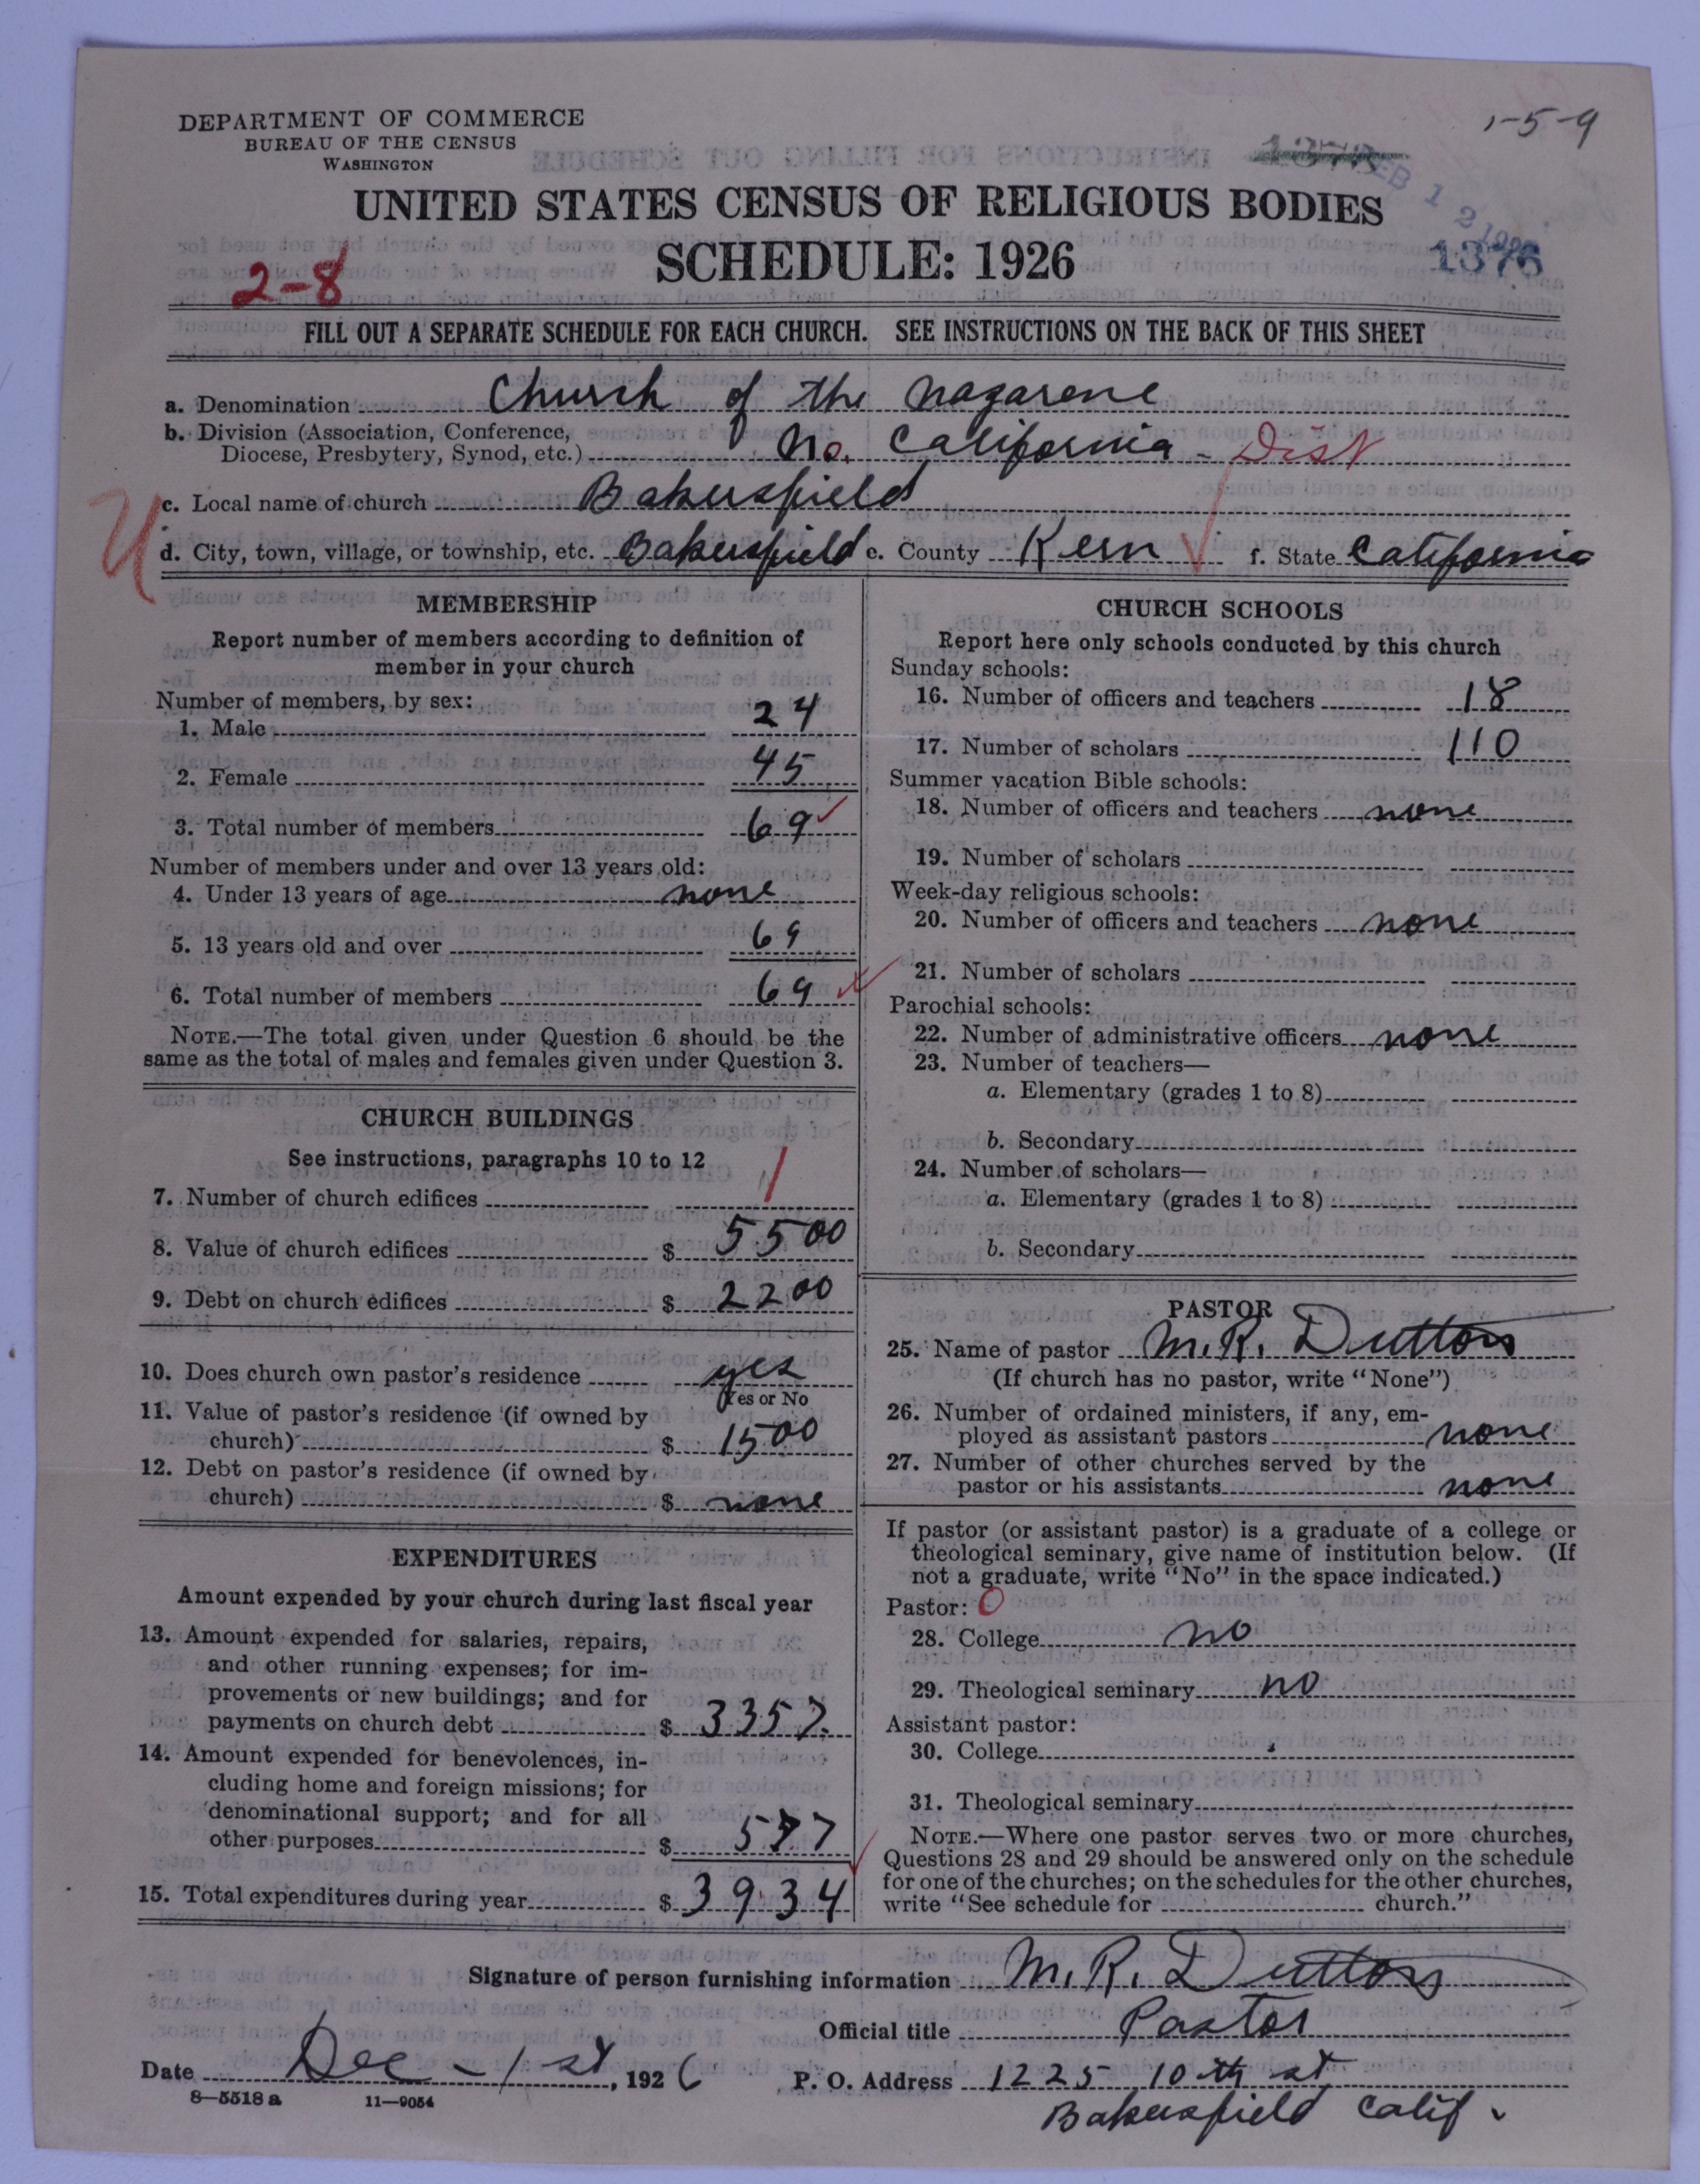 DEPARTMENT OF COMMERCE
BUREAU OF THE CENSUS
WASHINGTON
1-5-9
1376
UNITED STATES CENSUS OF RELIGIOUS BODIES
SCHEDULE: 1926
2-8
FILL OUT A SEPARATE SCHEDULE FOR EACH CHURCH. SEE INSTRUCTIONS ON THE BACK OF THIS SHEET
a. Denomination Church of the Nazarene
b. Division (Association, Conference,
Diocese, Presbytery, Synod, etc.) No. California - Dist
c. Local name of church Bakersfield
d. City, town, village, or township, etc. Bakersfield e. County Kern f. State California
MEMBERSHIP
Report number of members according to definition of
member in your church
Number of members, by sex:
1. Male 24
2. Female 45
3. Total number of members 69
Number of members under and over 13 years old:
4. Under 13 years of age none
5. 13 years old and over 69
6. Total number of members 69
NOTE.—The total given under Question 6 should be the
same as the total of males and females given under Question 3.
CHURCH BUILDINGS
See instructions, paragraphs 10 to 12
7. Number of church edifices 1
8. Value of church edifices $ 5500
9. Debt on church edifices $ 2200
10. Does church own pastor's residence yes
Yes or No
11. Value of pastor's residence (if owned by
church) $ 1500
12. Debt on pastor's residence (if owned by
church) $ none
EXPENDITURES
Amount expended by your church during last fiscal year
13. Amount expended for salaries, repairs,
and other running expenses; for im-
provements or new buildings; and for
payments on church debt $ 3357.
14. Amount expended for benevolences, in-
cluding home and foreign missions; for
denominational support; and for all
other purposes $ 577
15. Total expenditures during year $ 3934
CHURCH SCHOOLS
Report here only schools conducted by this church
Sunday schools:
16. Number of officers and teachers 18
17. Number of scholars 110
Summer vacation Bible schools:
18. Number of officers and teachers none
19. Number of scholars
Week-day religious schools:
20. Number of officers and teachers none
21. Number of scholars
Parochial schools:
22. Number of administrative officers none
23. Number of teachers—
a. Elementary (grades 1 to 8)
b. Secondary
24. Number of scholars—
a. Elementary (grades 1 to 8)
b. Secondary
PASTOR
25. Name of pastor M. R. Dutton
(If church has no pastor, write "None")
26. Number of ordained ministers, if any, em-
ployed as assistant pastors none
27. Number of other churches served by the
pastor or his assistants none
If pastor (or assistant pastor) is a graduate of a college or
theological seminary, give name of institution below. (If
not a graduate, write "No" in the space indicated.)
Pastor: 0
28. College no
29. Theological seminary no
Assistant pastor:
30. College
31. Theological seminary
NOTE.—Where one pastor serves two or more churches,
Questions 28 and 29 should be answered only on the schedule
for one of the churches; on the schedules for the other churches,
write "See schedule for church."
Signature of person furnishing information M. R. Dutton
Official title Pastor
Date Dec - 1st, 1926
P. O. Address 1225 10th st
Bakersfield Calif.
8-5518a 11-9054